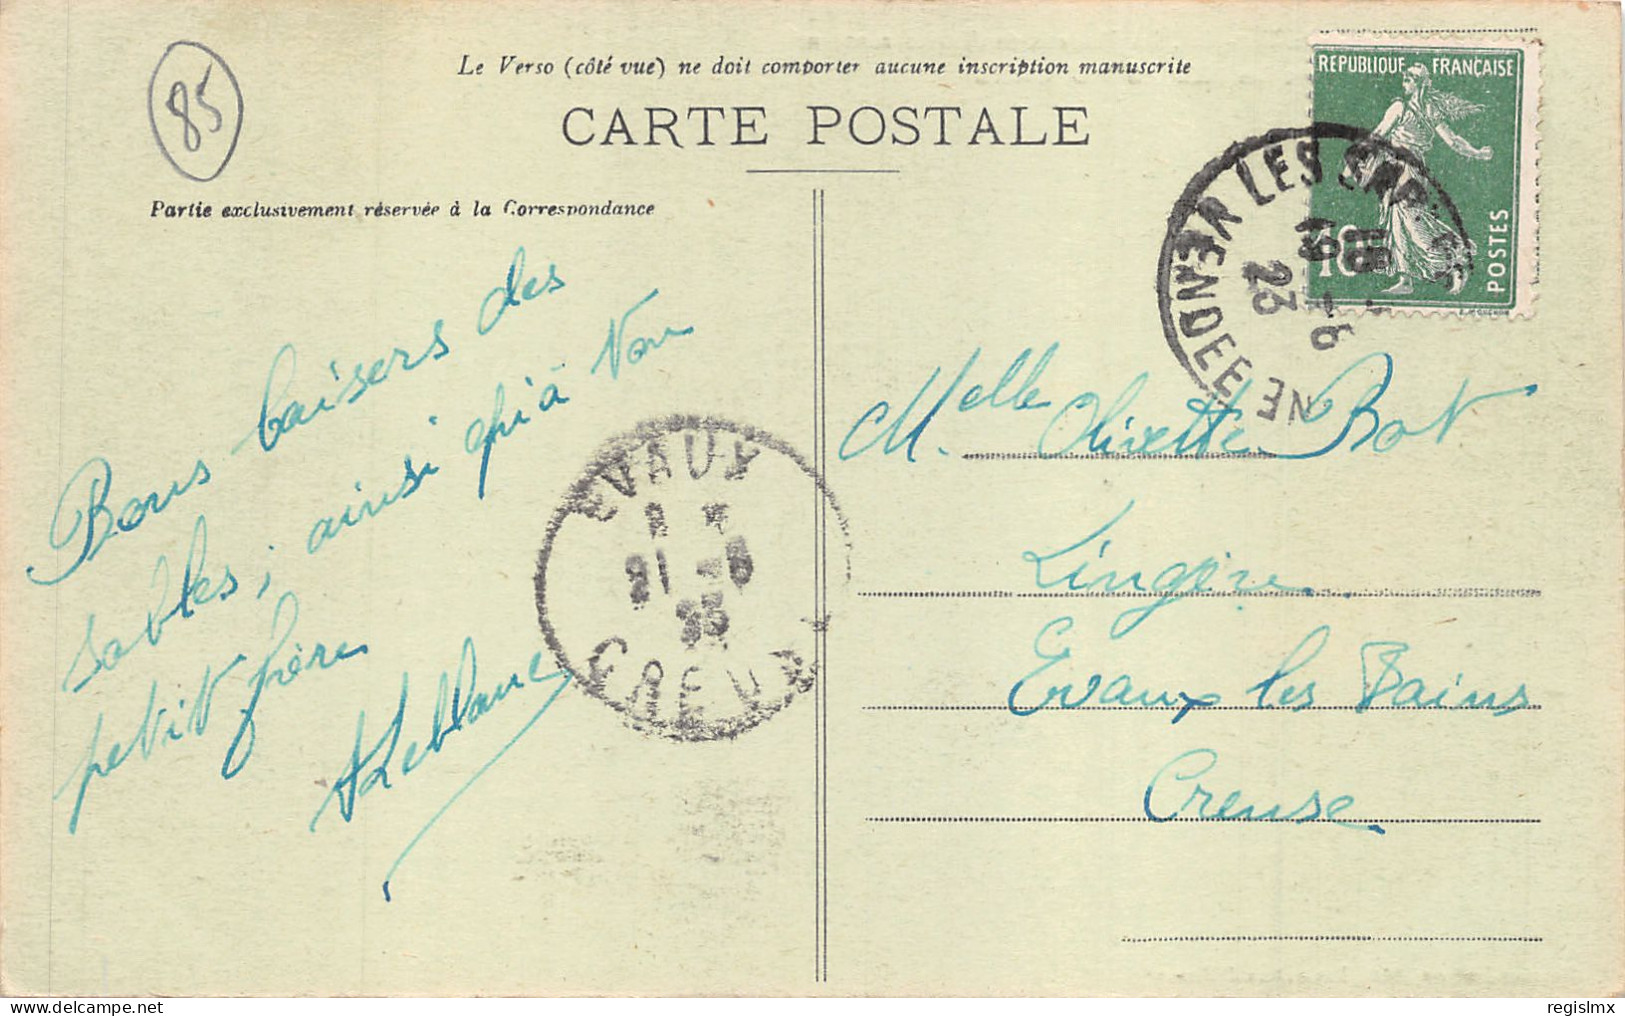 85
Le Verso (côté vue) ne doit comporter aucune inscription manuscrite
CARTE POSTALE
Partie exclusivement réservée à la Correspondance
REPUBLIQUE FRANÇAISE
10
POSTES
LES
VENDEE
19 -6
23
Bons baisers des
sables; ainsi qu'à ton
petit frère
ALeblanc
EVAUX
21 -6
23
CREUSE
Melle Olivette Bot
Lingère
Evaux les Bains
Creuse
regislmx